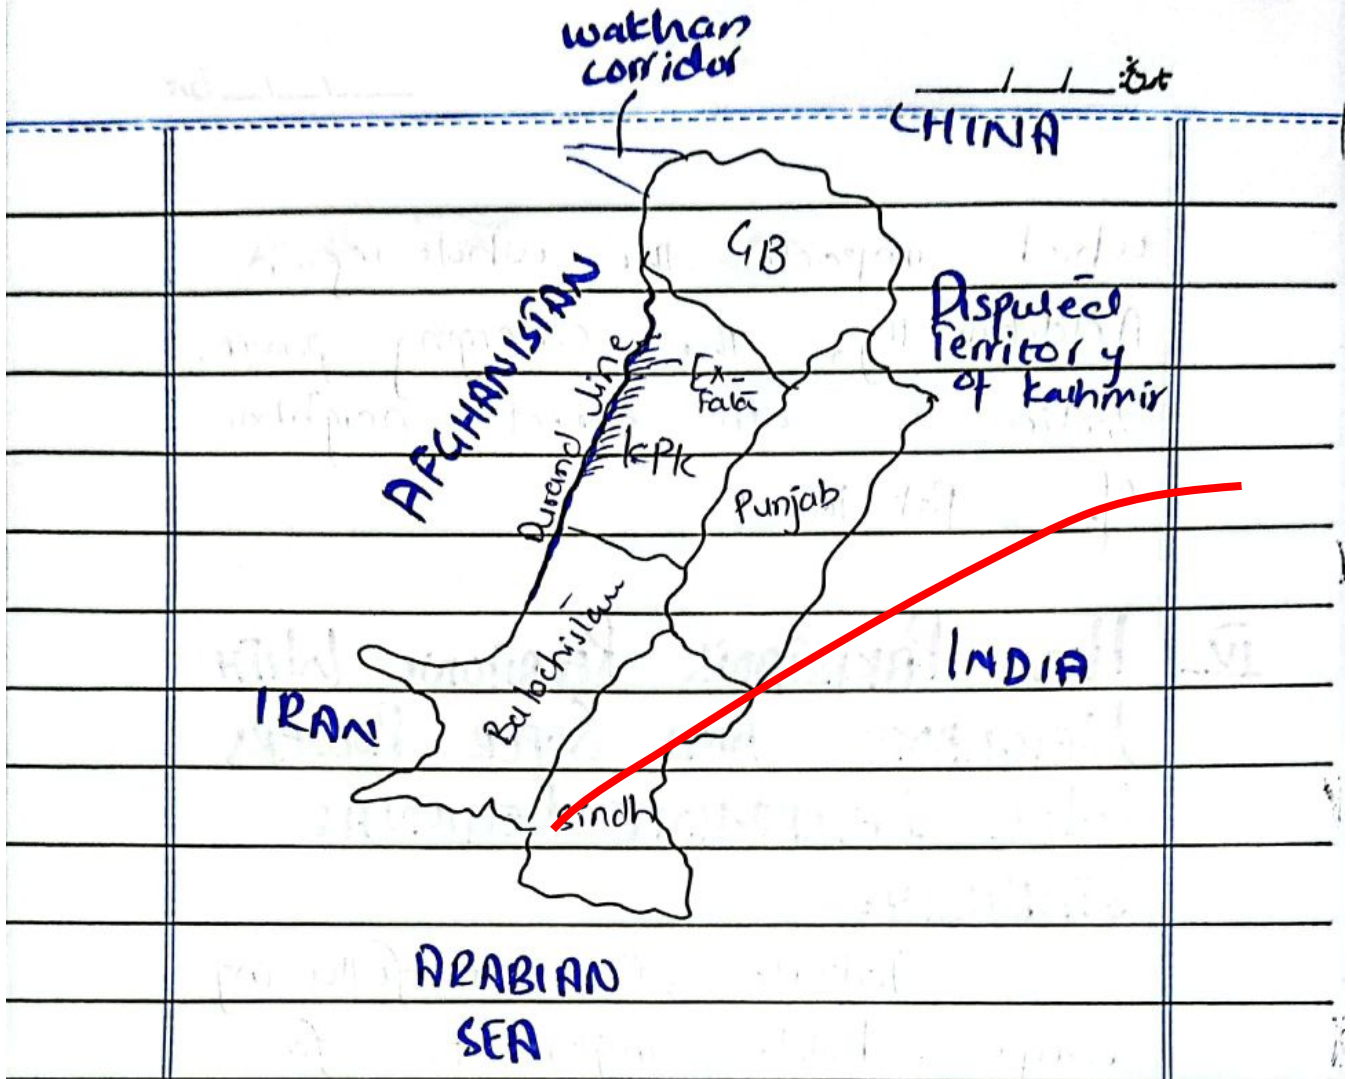 wakhan
corridor
CHINA
GB
AFGHANISTAN
Disputed
Territory
of Kashmir
Durand line
Ex-
Fata
KPK
Punjab
Balochistan
INDIA
IRAN
Sindh
ARABIAN
SEA